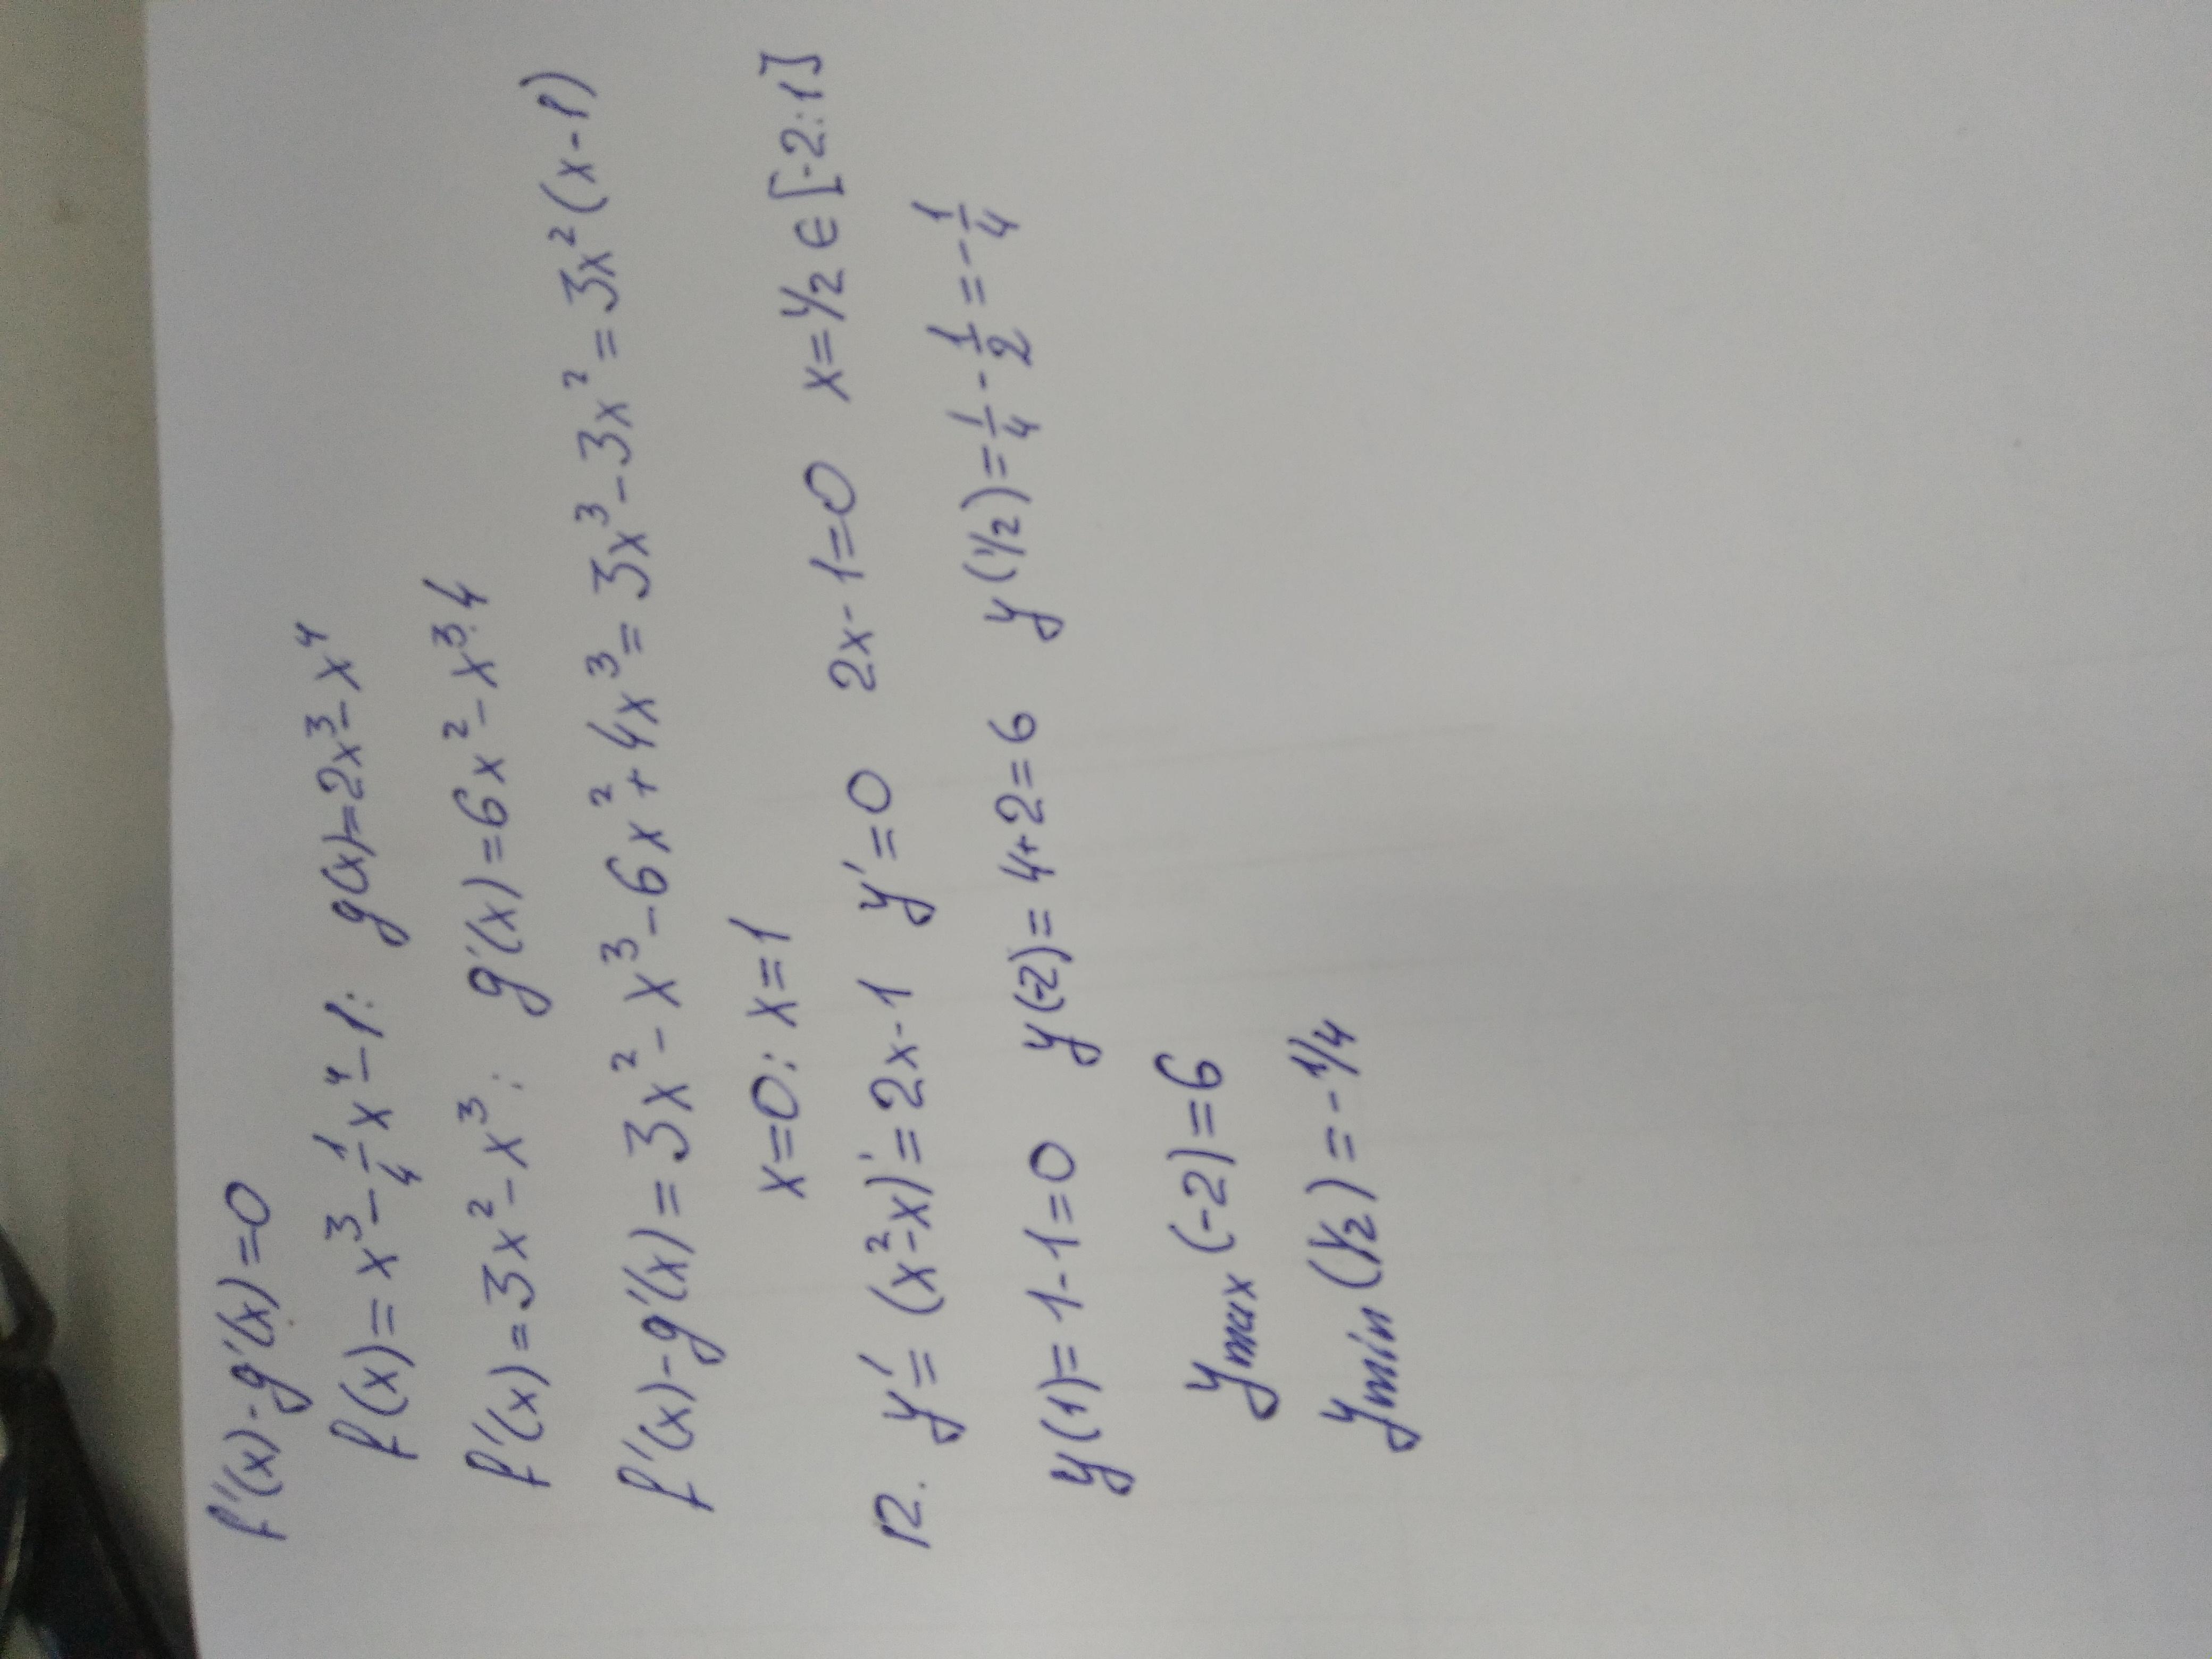 f'(x)-g'(x)=0
f(x)=x³-1/4x⁴-1: g(x)=2x³-x⁴
f'(x)=3x²-x³: g'(x)=6x²-x³·4
f'(x)-g'(x)=3x²-x³-6x²+4x³=3x³-3x²=3x²(x-1)
x=0: x=1
12. y'=(x²-x)'=2x-1 y'=0 2x-1=0 x=1/2∈[-2:1]
y(1)=1-1=0 y(-2)=4+2=6 y(1/2)=1/4-1/2=-1/4
ymax(-2)=6
ymin(1/2)=-1/4